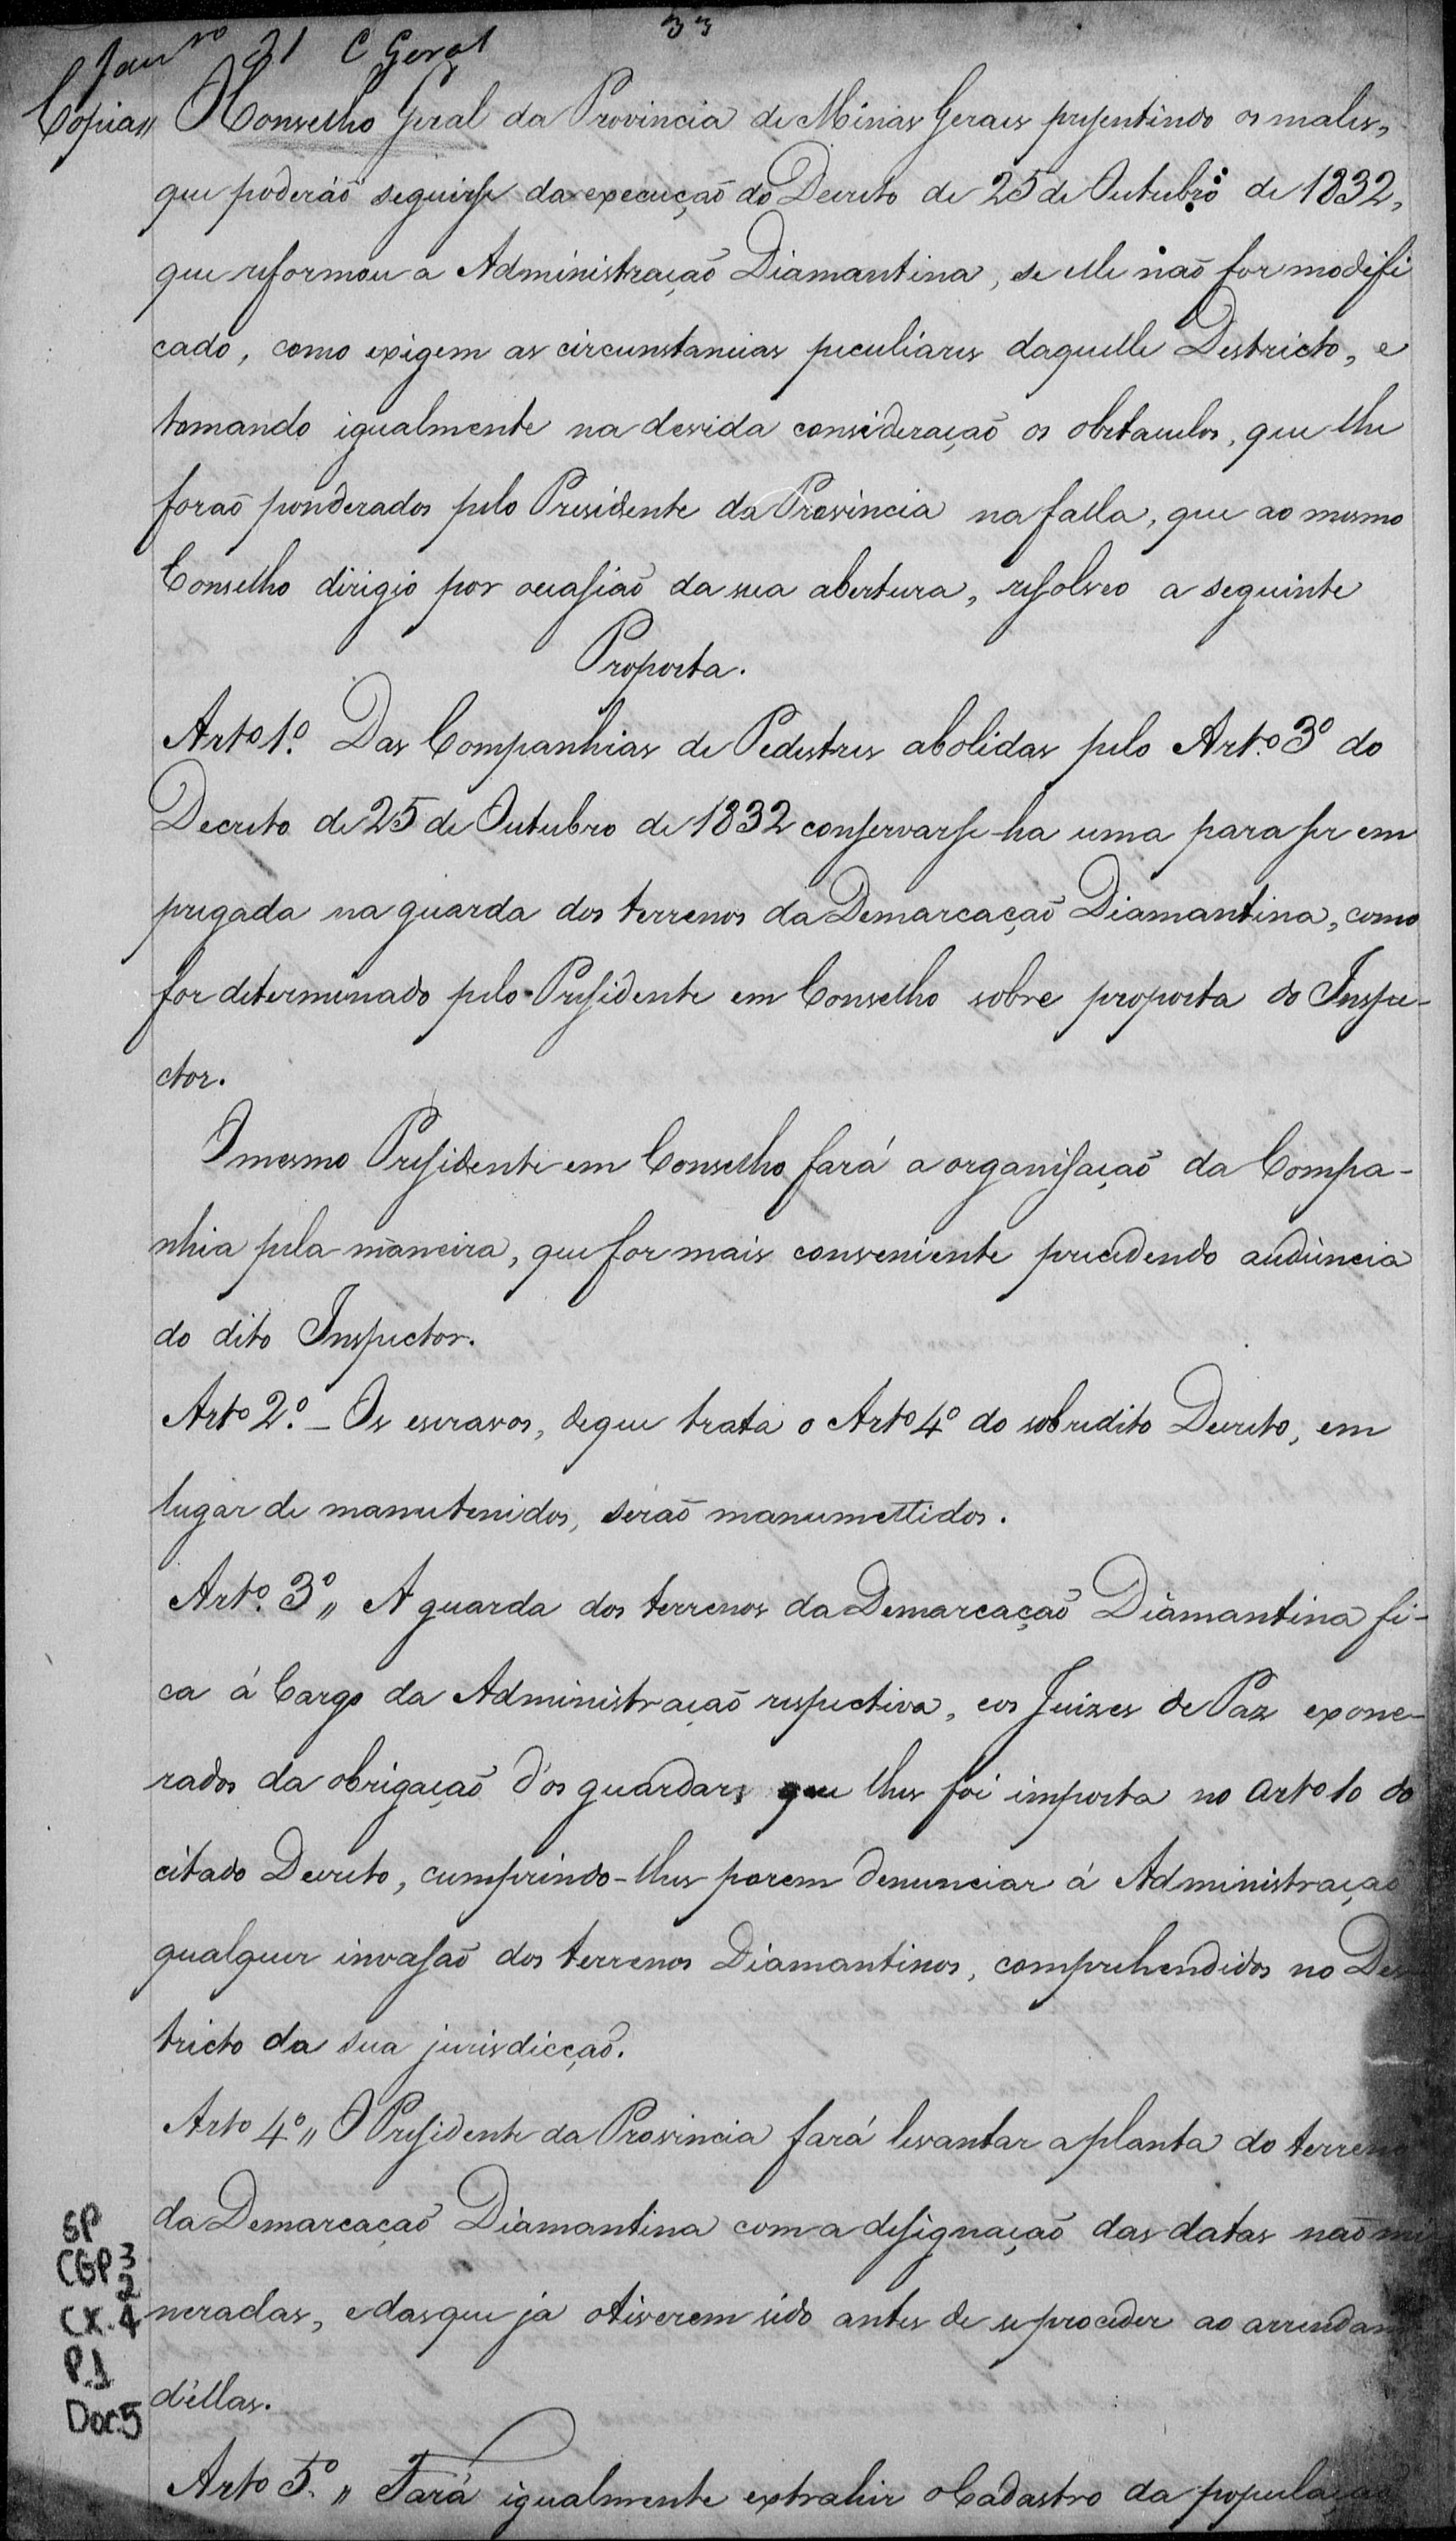 Jan.ro 21 C Geral 33
Copia,, O Conselho Geral da Provincia de Minas Geraes presentindo os males,
que poderáõ seguirse da execução do Decreto de 25 de Outubro de 1832,
que reformou a Administração Diamantina, se elle naõ for modifi
cado, como exigem as circunstancias peculiares daquelle Destricto, e
tomando igualmente na devida consideração os obstaculos, que lhe
foraõ ponderados pelo Presidente da Provincia na falla, que ao mesmo
Conselho dirigio por occasiaõ da sua abertura, resolveo a seguinte
Proposta.
Arto 1º. Das Companhias de Pedestres abolidas pelo Art.o 3º do
Decreto de 25 de Outubro de 1832 conservarse-ha uma para ser em
pregada na guarda dos terrenos da Demarcaçaõ Diamantina, como
for determinado pelo Presidente em Conselho sobre proposta do Inspe-
ctor.
O mesmo Presidente em Conselho fará a organisaçaõ da Compa-
nhia pela maneira, que for mais conveniente precedendo audiencia
do dito Inspector.
Arto 2º. - Os escravos, de que trata o Arto 4º do sobredito Decreto, em
lugar de manutenidos, seraõ manumettidos.
Art.o 3º,, A guarda dos terrenos da Demarcaçaõ Diamantina fi-
ca á Cargo da Administraçaõ respectiva, e os Juizes de Paz exone-
rados da obrigaçaõ d'os guardar, que lhes foi imposta no arto 10 do
citado Decreto, cumprindo-lhes porem denunciar á Administraçaõ
qualquer invasaõ dos terrenos Diamantinos, comprehendidos no Des
tricto da sua jurisdicçaõ.
Arto 4º,, O Presidente da Provincia fará levantar a planta do terreno
da Demarcaçaõ Diamantina com a designaçaõ das datas naõ mi
neradas, e das que ja o tiverem sido antes de se proceder ao arrendam
d'ellas.
Arto 5º. ,, Fará igualmente extrahir o Cadastro da populaçaõ
GP
CGP 3
2
CX. 4
P.1
Doc.5